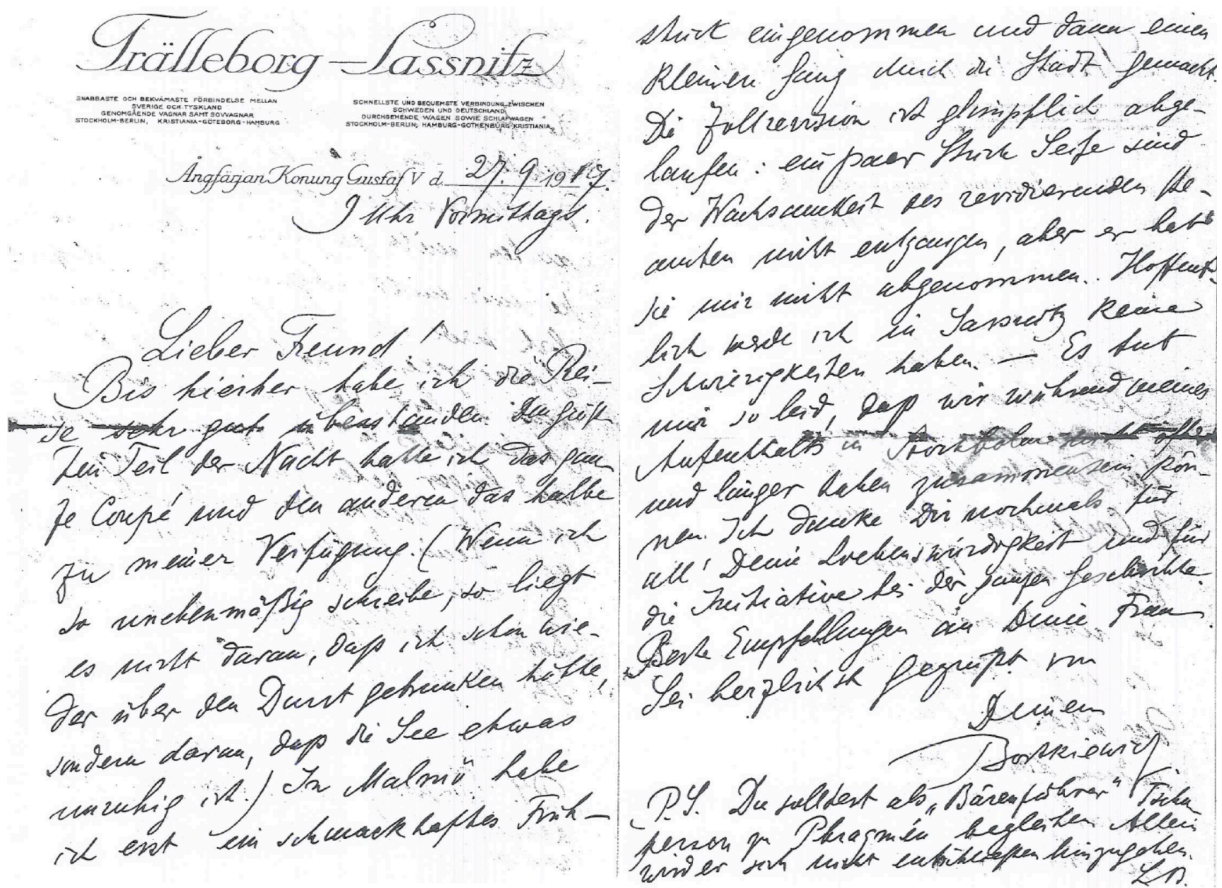 Trälleborg—Sassnitz
SNABBASTE OCH BEKVÄMASTE FÖRBINDELSE MELLAN
SVERIGE OCH TYSKLAND
GENOMGÅENDE VAGNAR SAMT SOVVAGNAR
STOCKHOLM-BERLIN, KRISTIANIA-GÖTEBORG-HAMBURG
SCHNELLSTE UND BEQUEMSTE VERBINDUNG ZWISCHEN
SCHWEDEN UND DEUTSCHLAND
DURCHGEHENDE WAGEN SOWIE SCHLAFWAGEN
STOCKHOLM-BERLIN, HAMBURG-GOTHENBURG KRISTIANIA
Ångfärjan Konung Gustaf V d. 27. 9 1917.
9 Uhr Vormittags.
Lieber Freund!
Bis hierher habe ich die Rei-
se sehr gut überstanden. Den größ-
ten Teil der Nacht hatte ich das gan-
ze Coupé und den anderen das halbe
zu meiner Verfügung. (Wenn ich
so unebenmäßig schreibe, so liegt
es nicht daran, daß ich schon wie-
der über den Durst getrunken hätte,
sondern daran, daß die See etwas
unruhig ist.) In Malmö habe
ich erst ein schmackhaftes Früh-
stück eingenommen und dann einen
kleinen Gang durch die Stadt gemacht.
Die Zollrevision ist glimpflich abge-
laufen: ein paar Stück Seife sind
der Wachsamkeit des revidierenden Be-
amten nicht entgangen, aber er hat
sie mir nicht abgenommen. Hoffent-
lich werde ich in Sassnitz keine
Schwierigkeiten haben. — Es tut
mir so leid, daß wir während meines
Aufenthalts in Stockholm nicht öfter
und länger haben zusammensein kön-
nen. Ich danke Dir nochmals für
all' Deine Liebenswürdigkeit und für
die Initiative bei der ganzen Geschichte.
Beste Empfehlungen an Deine Frau.
Sei herzlichst gegrüßt von
Deinem
Bortkiewicz
P.S. Du solltest als „Bärenführer“ Tschu
person zu Phragmén begleiten. Allein
wird er sich nicht entschließen hinzugehen.
LB.